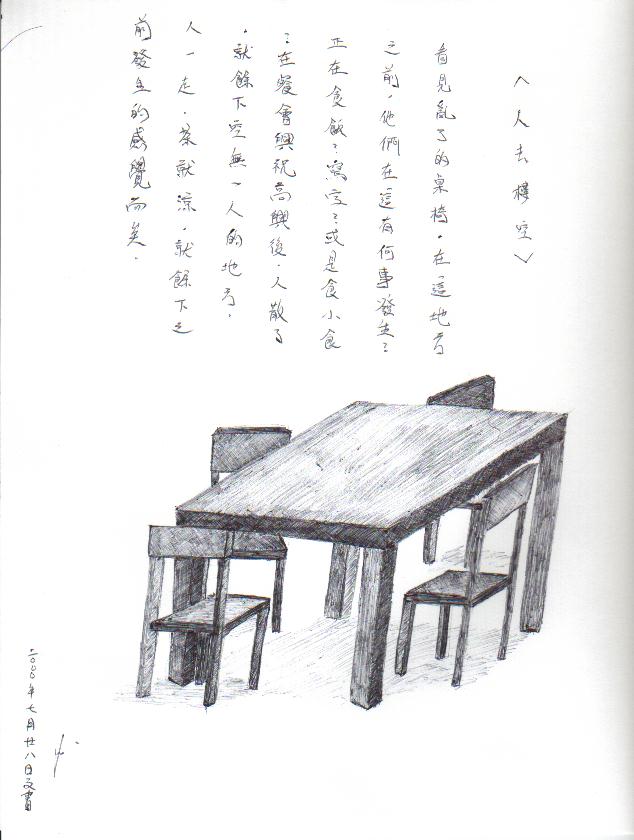 〈人去樓空〉
看見亂了的桌椅，在這地方
之前，他們在這有何事發生？
正在食飯？寫字？或是食小食
？在餐會興祝高興後，人散了
，就餘下空無一人的地方。
人一走，茶就涼，就餘下之
前發生的感覺而矣。
二〇〇〇年七月廿八日文書